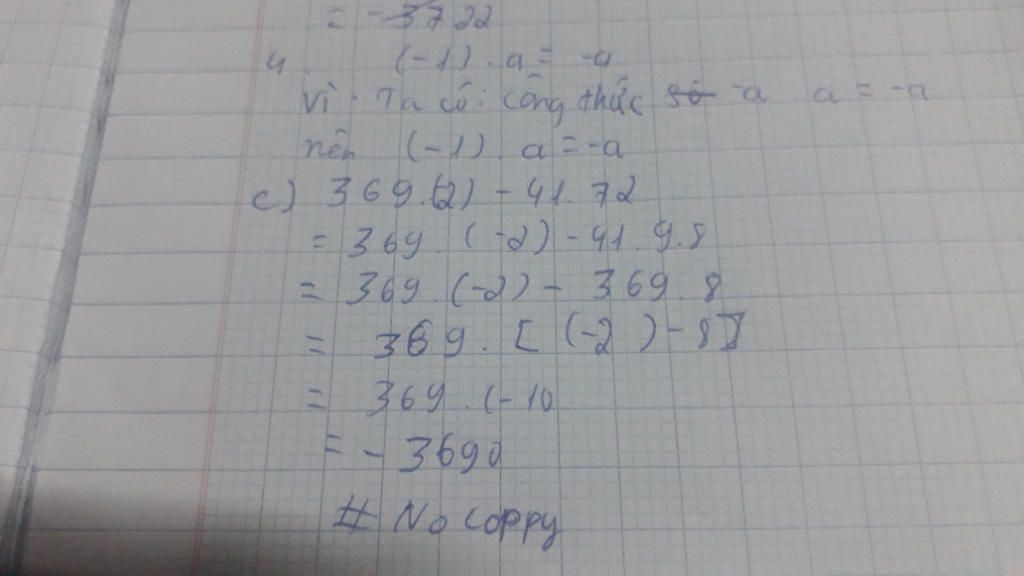 = -3722
4 (-1). a = -a
Vì: Ta có: công thức số -a a = -a
nên (-1) a = -a
c) 369.(2) - 41.72
= 369. (-2) - 41.9.8
= 369.(-2) - 369.8
= 369. [(-2) - 8]
= 369.(-10
= -3690
# No coppy